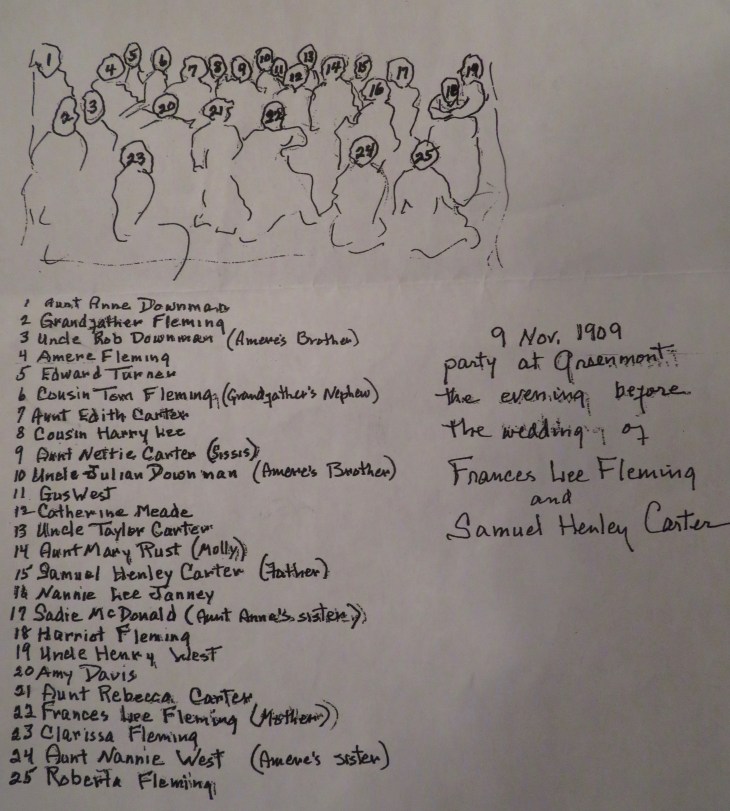 1
5
6
4
7
8
9
10
11
12
13
14
15
16
17
18
19
2
3
20
21
22
23
24
25
1 Aunt Anne Downman
2 Grandfather Fleming
3 Uncle Rob Downman (Amere's Brother)
4 Amere Fleming
5 Edward Turner
6 Cousin Tom Fleming (Grandfather's Nephew)
7 Aunt Edith Carter
8 Cousin Harry Lee
9 Aunt Nettie Carter (Sissis)
10 Uncle Julian Downman (Amere's Brother)
11 Gus West
12 Catherine Meade
13 Uncle Taylor Carter
14 Aunt Mary Rust (Molly)
15 Samuel Henley Carter (Father)
16 Nannie Lee Janney
17 Sadie McDonald (Aunt Anne's sister)
18 Harriot Fleming
19 Uncle Henry West
20 Amy Davis
21 Aunt Rebecca Carter
22 Frances Lee Fleming (Mother)
23 Clarissa Fleming
24 Aunt Nannie West (Amere's sister)
25 Roberta Fleming
9 Nov. 1909
party at Greenmont
the evening before
the wedding of
Frances Lee Fleming
and
Samuel Henley Carter